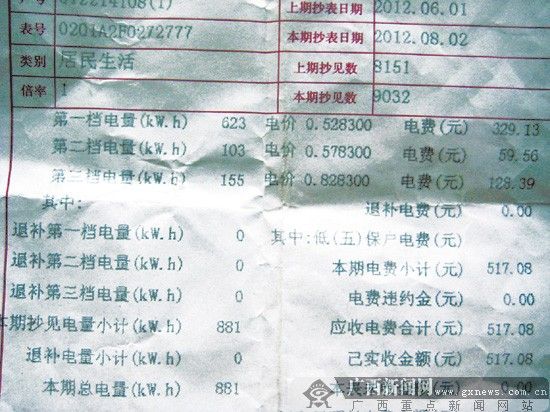 户号 072214108(1) 上期抄表日期 2012.06.01
表号 0201A2F0272777 本期抄表日期 2012.08.02
类别 居民生活 上期抄见数 8151
倍率 1 本期抄见数 9032
第一档电量(kW.h) 623 电价 0.528300 电费(元) 329.13
第二档电量(kW.h) 103 电价 0.578300 电费(元) 59.56
第三档电量(kW.h) 155 电价 0.828300 电费(元) 128.39
其中: 退补电费(元) 0.00
退补第一档电量(kW.h) 0 其中:低(五)保户电费(元)
退补第二档电量(kW.h) 0 本期电费小计(元) 517.08
退补第三档电量(kW.h) 0 电费违约金(元) 0.00
本期抄见电量小计(kW.h) 881 应收电费合计(元) 517.08
退补电量小计(kW.h) 0 己实收金额(元) 517.08
本期总电量(kW.h) 881 0.00
广西新闻网 www.gxnews.com.cn
广西重点新闻网站